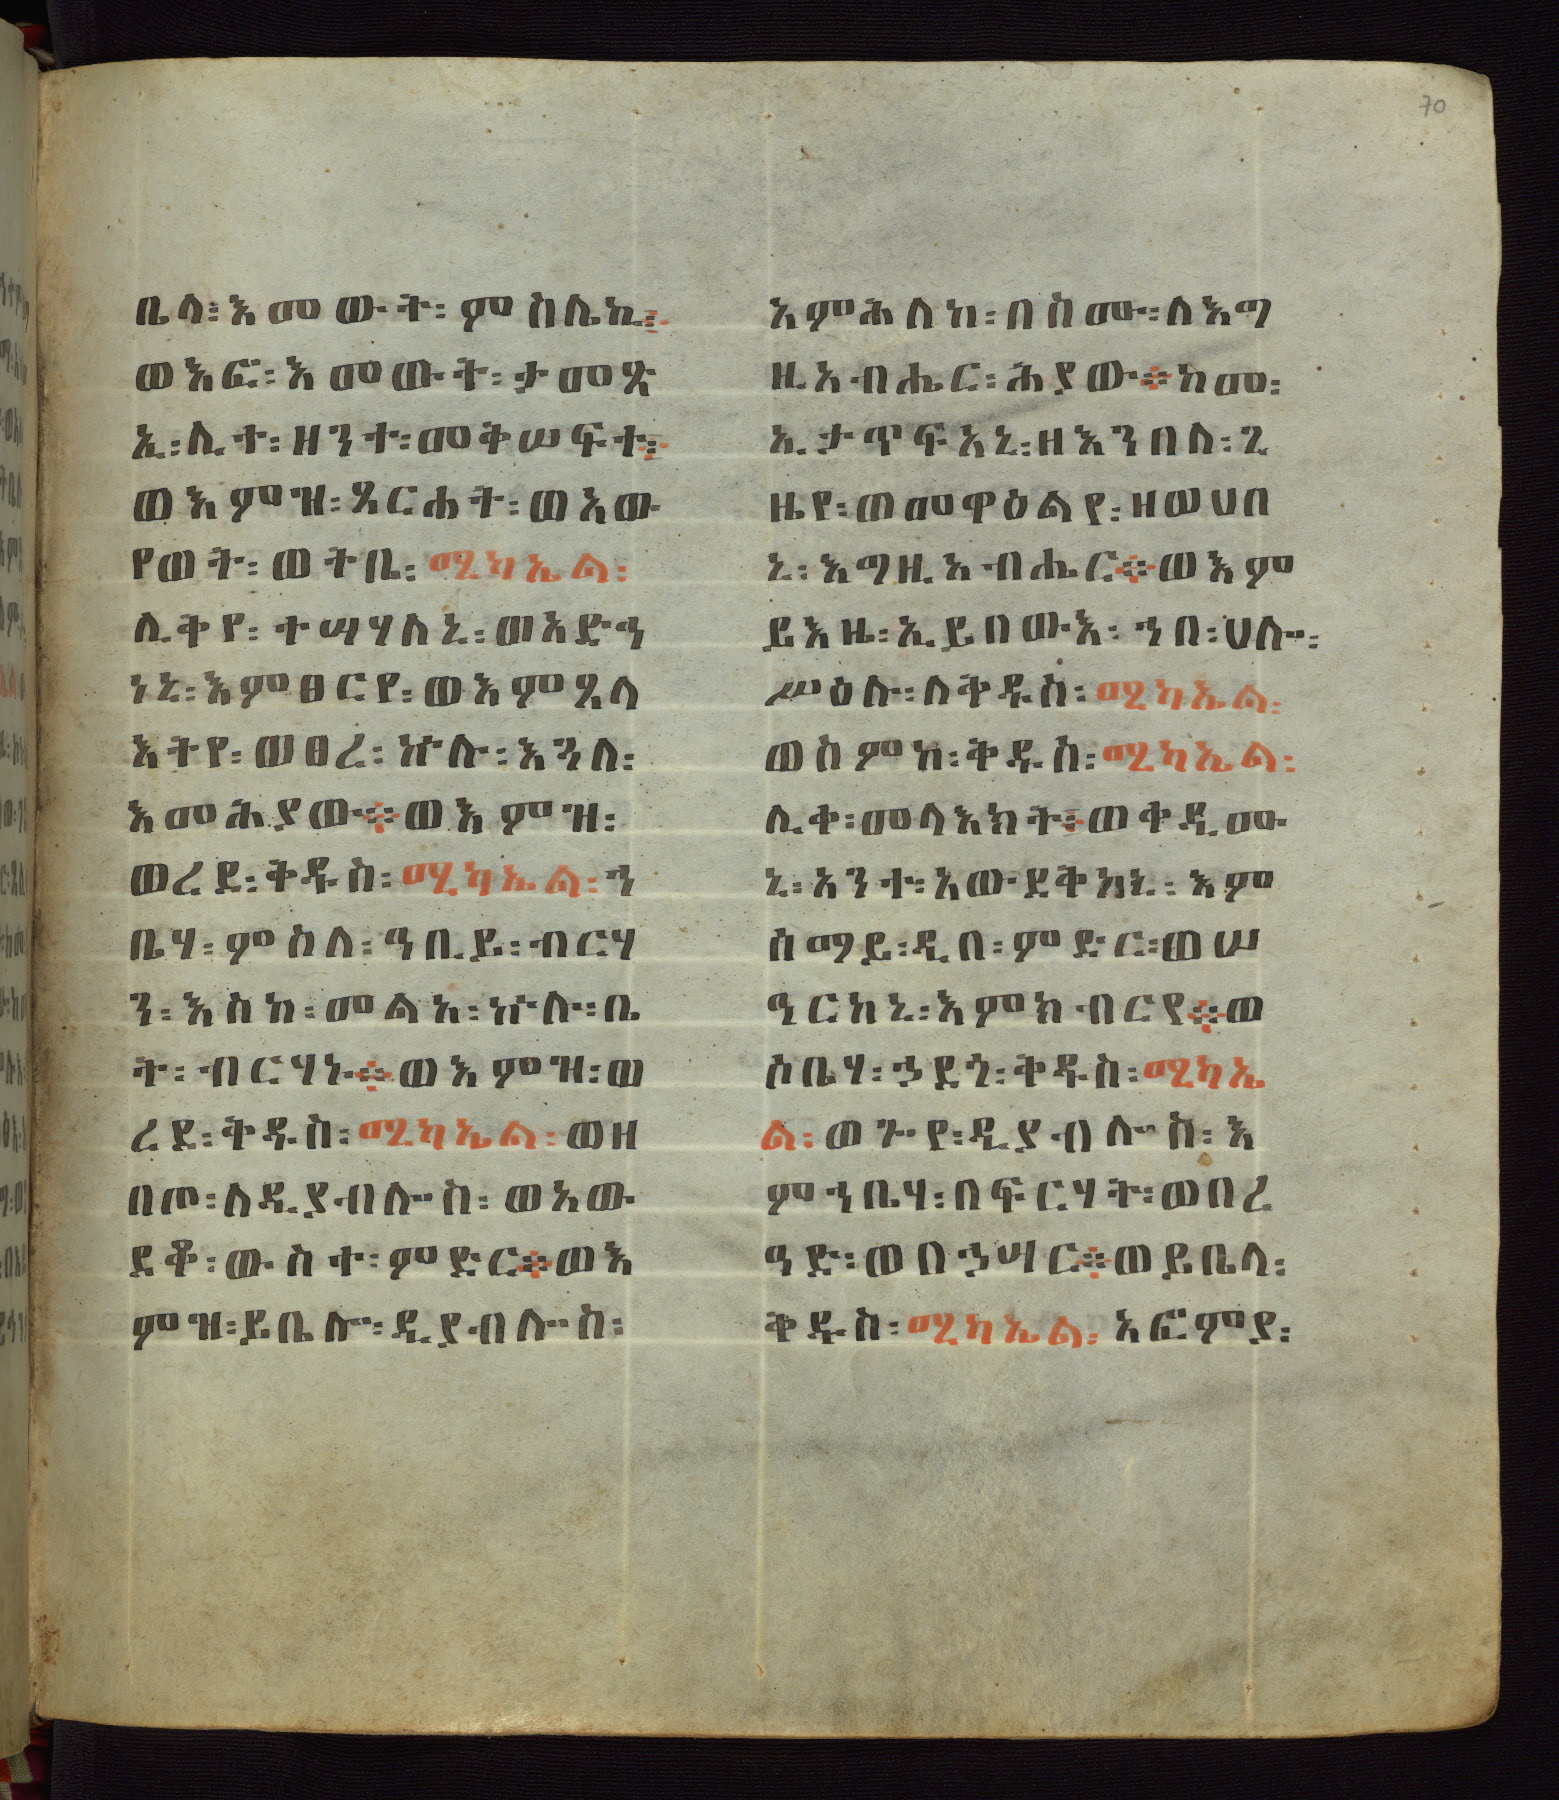 70
ቤላ፡ እመውት፡ ምስሌኪ፡
ወእፎ፡ እመውት፡ ታመጽ
ኢ፡ ሊተ፡ ዘንተ፡ መቅሠፍተ፡
ወእምዝ፡ ጸርሐት፡ ወአው
የወት፡ ወትቤ፡ ሚካኤል፡
ሊቅየ፡ ተሣሃለኒ፡ ወአድኅ
ነኒ፡ እምፀርየ፡ ወእምጸላ
እትየ፡ ወፀረ፡ ኵሉ፡ እጓለ፡
እመሕያው። ወእምዝ፡
ወረደ፡ ቅዱስ፡ ሚካኤል፡ ኀ
ቤሃ፡ ምስለ፡ ዓቢይ፡ ብርሃ
ን፡ እስከ፡ መልአ፡ ኵሎ፡ ቤ
ተ፡ ብርሃነ። ወእምዝ፡ ወ
ረደ፡ ቅዱስ፡ ሚካኤል፡ ወዘ
በጦ፡ ለዲያብሎስ፡ ወአው
ደቆ፡ ውስተ፡ ምድር። ወእ
ምዝ፡ ይቤሎ፡ ዲያብሎስ፡
አምሕለከ፡ በስሙ፡ ለእግ
ዚአብሔር፡ ሕያው። ከመ፡
ኢታጥፍአኒ፡ ዘእንበለ፡ ጊ
ዜየ፡ ወመዋዕልየ፡ ዘወሀበ
ኒ፡ እግዚአብሔር። ወእም
ይእዜ፡ ኢይበውእ፡ ኀበ፡ ሀሎ፡
ሥዕሉ፡ ለቅዱስ፡ ሚካኤል፡
ወስምከ፡ ቅዱስ፡ ሚካኤል፡
ሊቀ፡ መላእክት፡ ወቀዲሙ
ኒ፡ አንተ፡ አውደቅከኒ፡ እም
ሰማይ፡ ዲበ፡ ምድር፡ ወሠ
ዓርከኒ፡ እምክብርየ። ወ
ሶቤሃ፡ ኃደጎ፡ ቅዱስ፡ ሚካኤ
ል፡ ወጕየ፡ ዲያብሎስ፡ እ
ምኀቤሃ፡ በፍርሃት፡ ወበረ
ዓድ፡ ወበኃሣር። ወይቤላ፡
ቅዱስ፡ ሚካኤል፡ አፎምያ፡